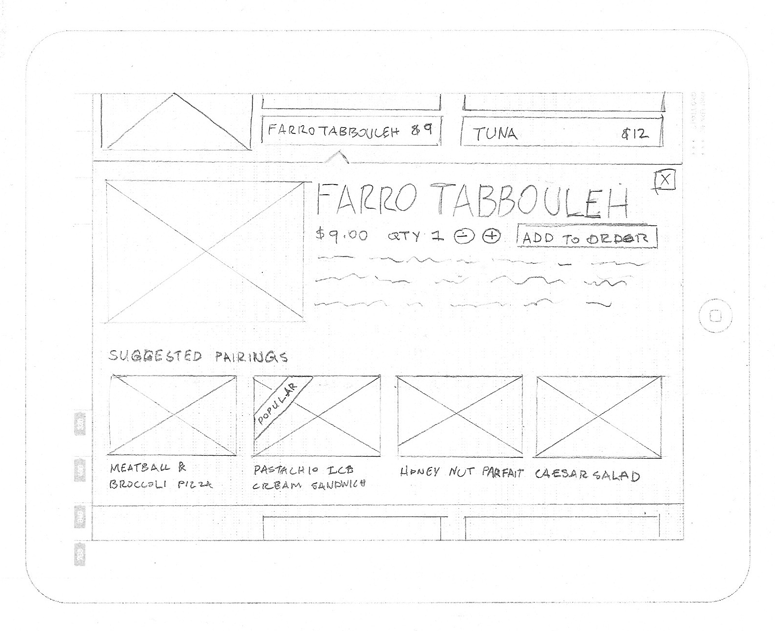 FARRO TABBOULEH $9
TUNA $12
X
FARRO TABBOULEH
$9.00 QTY 1 - + ADD TO ORDER
SUGGESTED PAIRINGS
POPULAR
MEATBALL &
BROCCOLI PIZZA
PASTACHIO ICE
CREAM SANDWICH
HONEY NUT PARFAIT
CAESAR SALAD